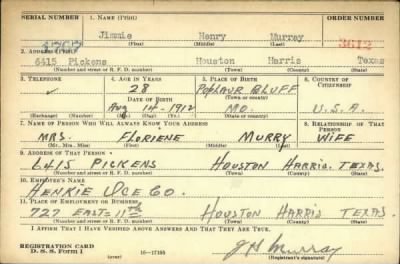 SERIAL NUMBER 1. NAME (PRINT) ORDER NUMBER
Jimmie Henry Murray 3612
(First) (Middle) (Last)
2. ADDRESS (PRINT)
6415 Pickens Houston Harris Texas
(Number and street or R. F. D. number) (Town) (County) (State)
3. TELEPHONE 4. AGE IN YEARS 5. PLACE OF BIRTH 6. COUNTRY OF CITIZENSHIP
✓ 28 POPLAUR BLUFF
(Town or county)
DATE OF BIRTH
Aug 14-1912 MO. U.S.A.
(Exchange) (Number) (Mo.) (Day) (Yr.) (State or country)
7. NAME OF PERSON WHO WILL ALWAYS KNOW YOUR ADDRESS 8. RELATIONSHIP OF THAT PERSON
MRS. FLORIENE MURRY WIFE
(Mr., Mrs., Miss) (First) (Middle) (Last)
9. ADDRESS OF THAT PERSON
6415 PICKENS HOUSTON HARRIS. TEXAS.
(Number and street or R. F. D. number) (Town) (County) (State)
10. EMPLOYER'S NAME
HENKIE ICE CO.
11. PLACE OF EMPLOYMENT OR BUSINESS
727 EAST-11TH HOUSTON HARRIS TEXAS.
(Number and street or R. F. D. number) (Town) (County) (State)
I AFFIRM THAT I HAVE VERIFIED ABOVE ANSWERS AND THAT THEY ARE TRUE.
REGISTRATION CARD
D. S. S. Form 1 16-17105 J H Murray
(over) (Registrant's signature)